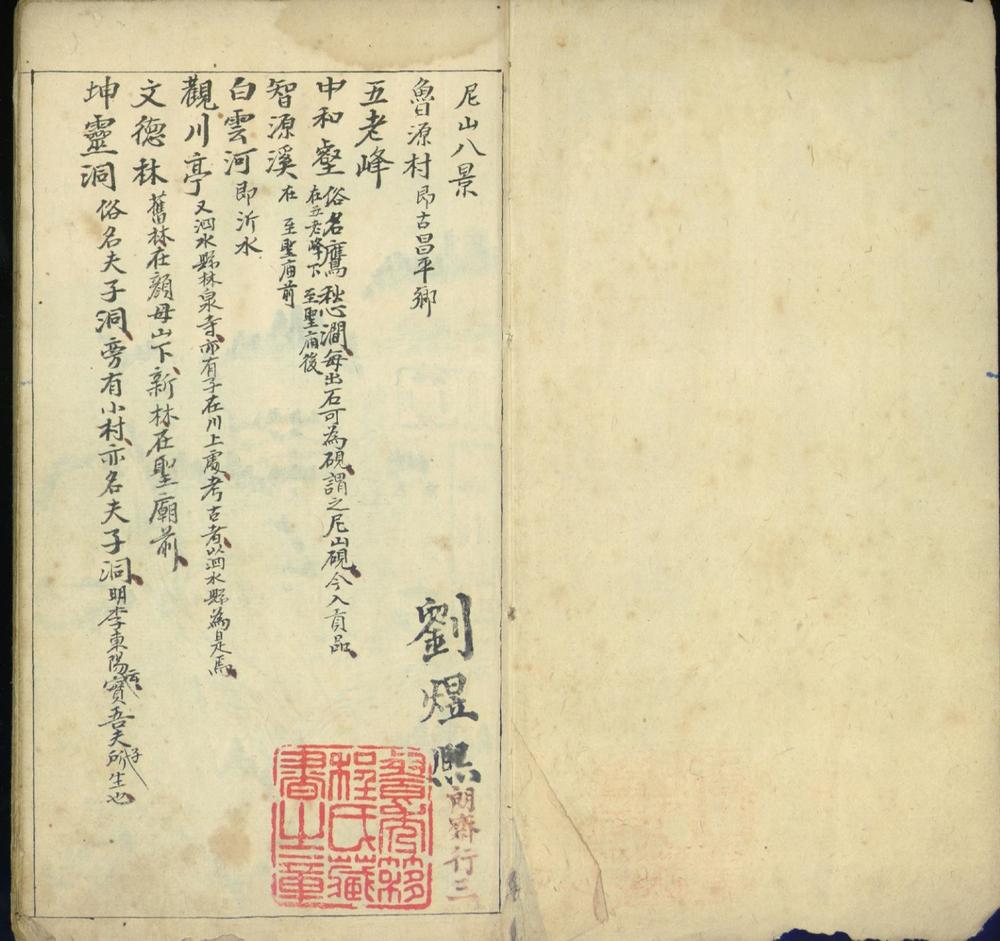 尼山八景
魯源村 即古昌平鄉
五老峰
中和壑 俗名鷹愁澗每出石可為硯謂之尼山硯今入貢品
在五老峰下 至聖庙後
智源溪 在 至聖庙前
白雲河 即沂水
觀川亭 又泗水縣林泉寺亦有子在川上處考古者以泗水縣為是焉
文德林 舊林在顏母山下新林在聖廟前
坤靈洞 俗名夫子洞旁有小村亦名夫子洞明李東陽云實吾夫子所生也
劉煜熙
朗齋行三
程氏藏
書之章